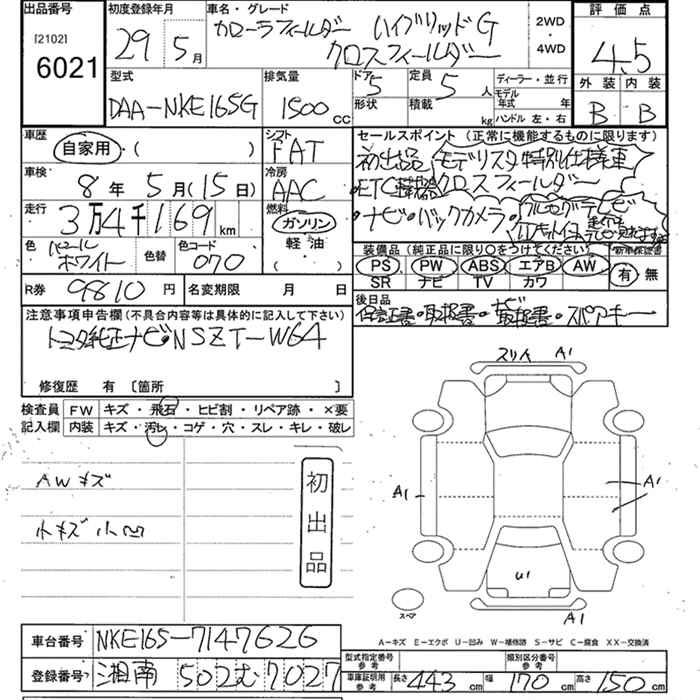 出品番号 初度登録年月 車名・グレード 評価点
[2102] 6021
29年 5月
カローラフィールダー ハイブリッドG
クロスフィールダー
2WD
・
4WD
4.5
型式 排気量 ドア 定員 ディーラー・並行 外装 内装
DAA-NKE165G 1500cc 5 5人
モデル年式 年
形状 積載 kg ハンドル 左・右
B B
車歴 シフト セールスポイント (正常に機能するものに限ります)
自家用・( ) FAT
初出品 モデリスタ特別仕様車
車検 冷房
8年 5月(15日) AAC
クロスフィールダー
走行 燃料
3万4千169km
ガソリン
軽油
( )
ナビ・バックカメラ・フルセグテレビ
色 色替 色コード
パール
ホワイト 070
装備品(純正品に限り○をつけてください) 新車保証書
PS PW ABS エアB AW
SR ナビ TV カワ
有 無
R券 9810円 名変期限 月 日
後日品
保証書・取扱書・ナビ取扱書・スペアキー
注意事項申告欄(不具合内容等は具体的に記入して下さい)
トヨタ純正ナビNSZT-W64
修復歴 有 〔箇所 〕
検査員 FW キズ・飛石・ヒビ割・リペア跡・×要
記入欄 内装 キズ・汚レ・コゲ・穴・スレ・キレ・破レ
スリA A1
AWキズ
小キズ小凹
初出品
A1
A1
U1
スペア
A1
A-キズ E-エクボ U-凹み W-補修跡 S-サビ C-腐食 XX-交換済
車台番号 NKE165-7147626
型式指定番号 参考 類別区分番号 参考
登録番号 湘南 502む7027
車庫証明用 参考 長さ 443cm 幅 170cm 高さ 150cm